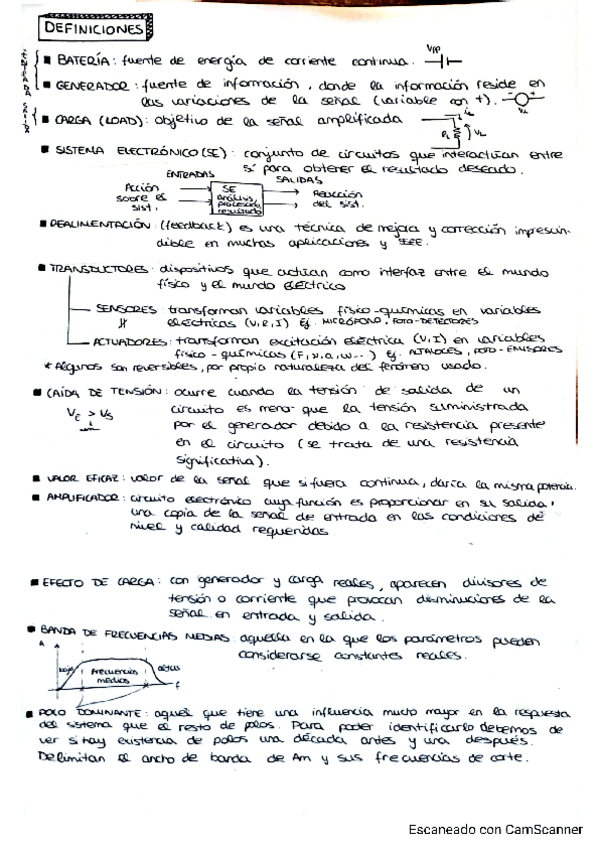 DEFINICIONES
BATERÍA: fuente de energía de corriente continua. Vpp
GENERADOR: fuente de información, donde la información reside en
las variaciones de la señal (variable con t).
CARGA (LOAD): objetivo de la señal amplificada
RL VL
SISTEMA ELECTRÓNICO (SE): conjunto de circuitos que interactúan entre
sí para obtener el resultado deseado.
ENTRADAS SALIDAS
Acción SE Reacción
sobre el análisis, del sist.
sist. procesado, resultado
REALIMENTACIÓN: (feedback) es una técnica de mejora y corrección imprescin-
dible en muchas aplicaciones y SSEE.
TRANSDUCTORES: dispositivos que actúan como interfaz entre el mundo
físico y el mundo eléctrico
SENSORES: transforman variables físico-químicas en variables
eléctricas (V, R, I) Ej. MICRÓFONO, FOTO-DETECTORES
ACTUADORES: transforman excitación eléctrica (V, I) en variables
físico-químicas (F, v, a, w...) Ej. ALTAVOCES, FOTO-EMISORES
* Algunos son reversibles, por propia naturaleza del fenómeno usado.
CAÍDA DE TENSIÓN: ocurre cuando la tensión de salida de un
circuito es menor que la tensión suministrada
por el generador debido a la resistencia presente
en el circuito (se trata de una resistencia
significativa).
VALOR EFICAZ: valor de la señal que si fuera continua, daría la misma potencia.
AMPLIFICADOR: circuito electrónico cuya función es proporcionar en su salida,
una copia de la señal de entrada en las condiciones de
nivel y calidad requeridas
EFECTO DE CARGA: con generador y carga reales, aparecen divisores de
tensión o corriente que provocan disminuciones de la
señal en entrada y salida.
BANDA DE FRECUENCIAS MEDIAS: aquella en la que los parámetros pueden
considerarse constantes reales.
A
bajas Frecuencias medias altas
f
POLO DOMINANTE: aquel que tiene una influencia mucho mayor en la respuesta
del sistema que el resto de polos. Para poder identificarlo debemos de
ver si hay existencia de polos una década antes y una después.
Delimitan el ancho de banda de Am y sus frecuencias de corte.
Escaneado con CamScanner